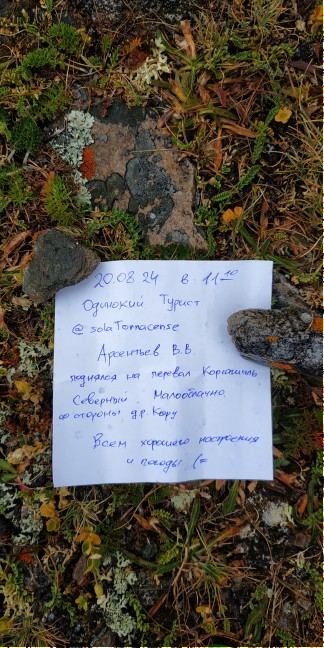 20.08.24 в 11 10
Одинокий Турист
@solaTornacense
Арсентьев В.В.
поднялся на перевал Коргашиль
Северный. Малооблачно.
со стороны др. Кору
Всем хорошего настроения
и погоды (=